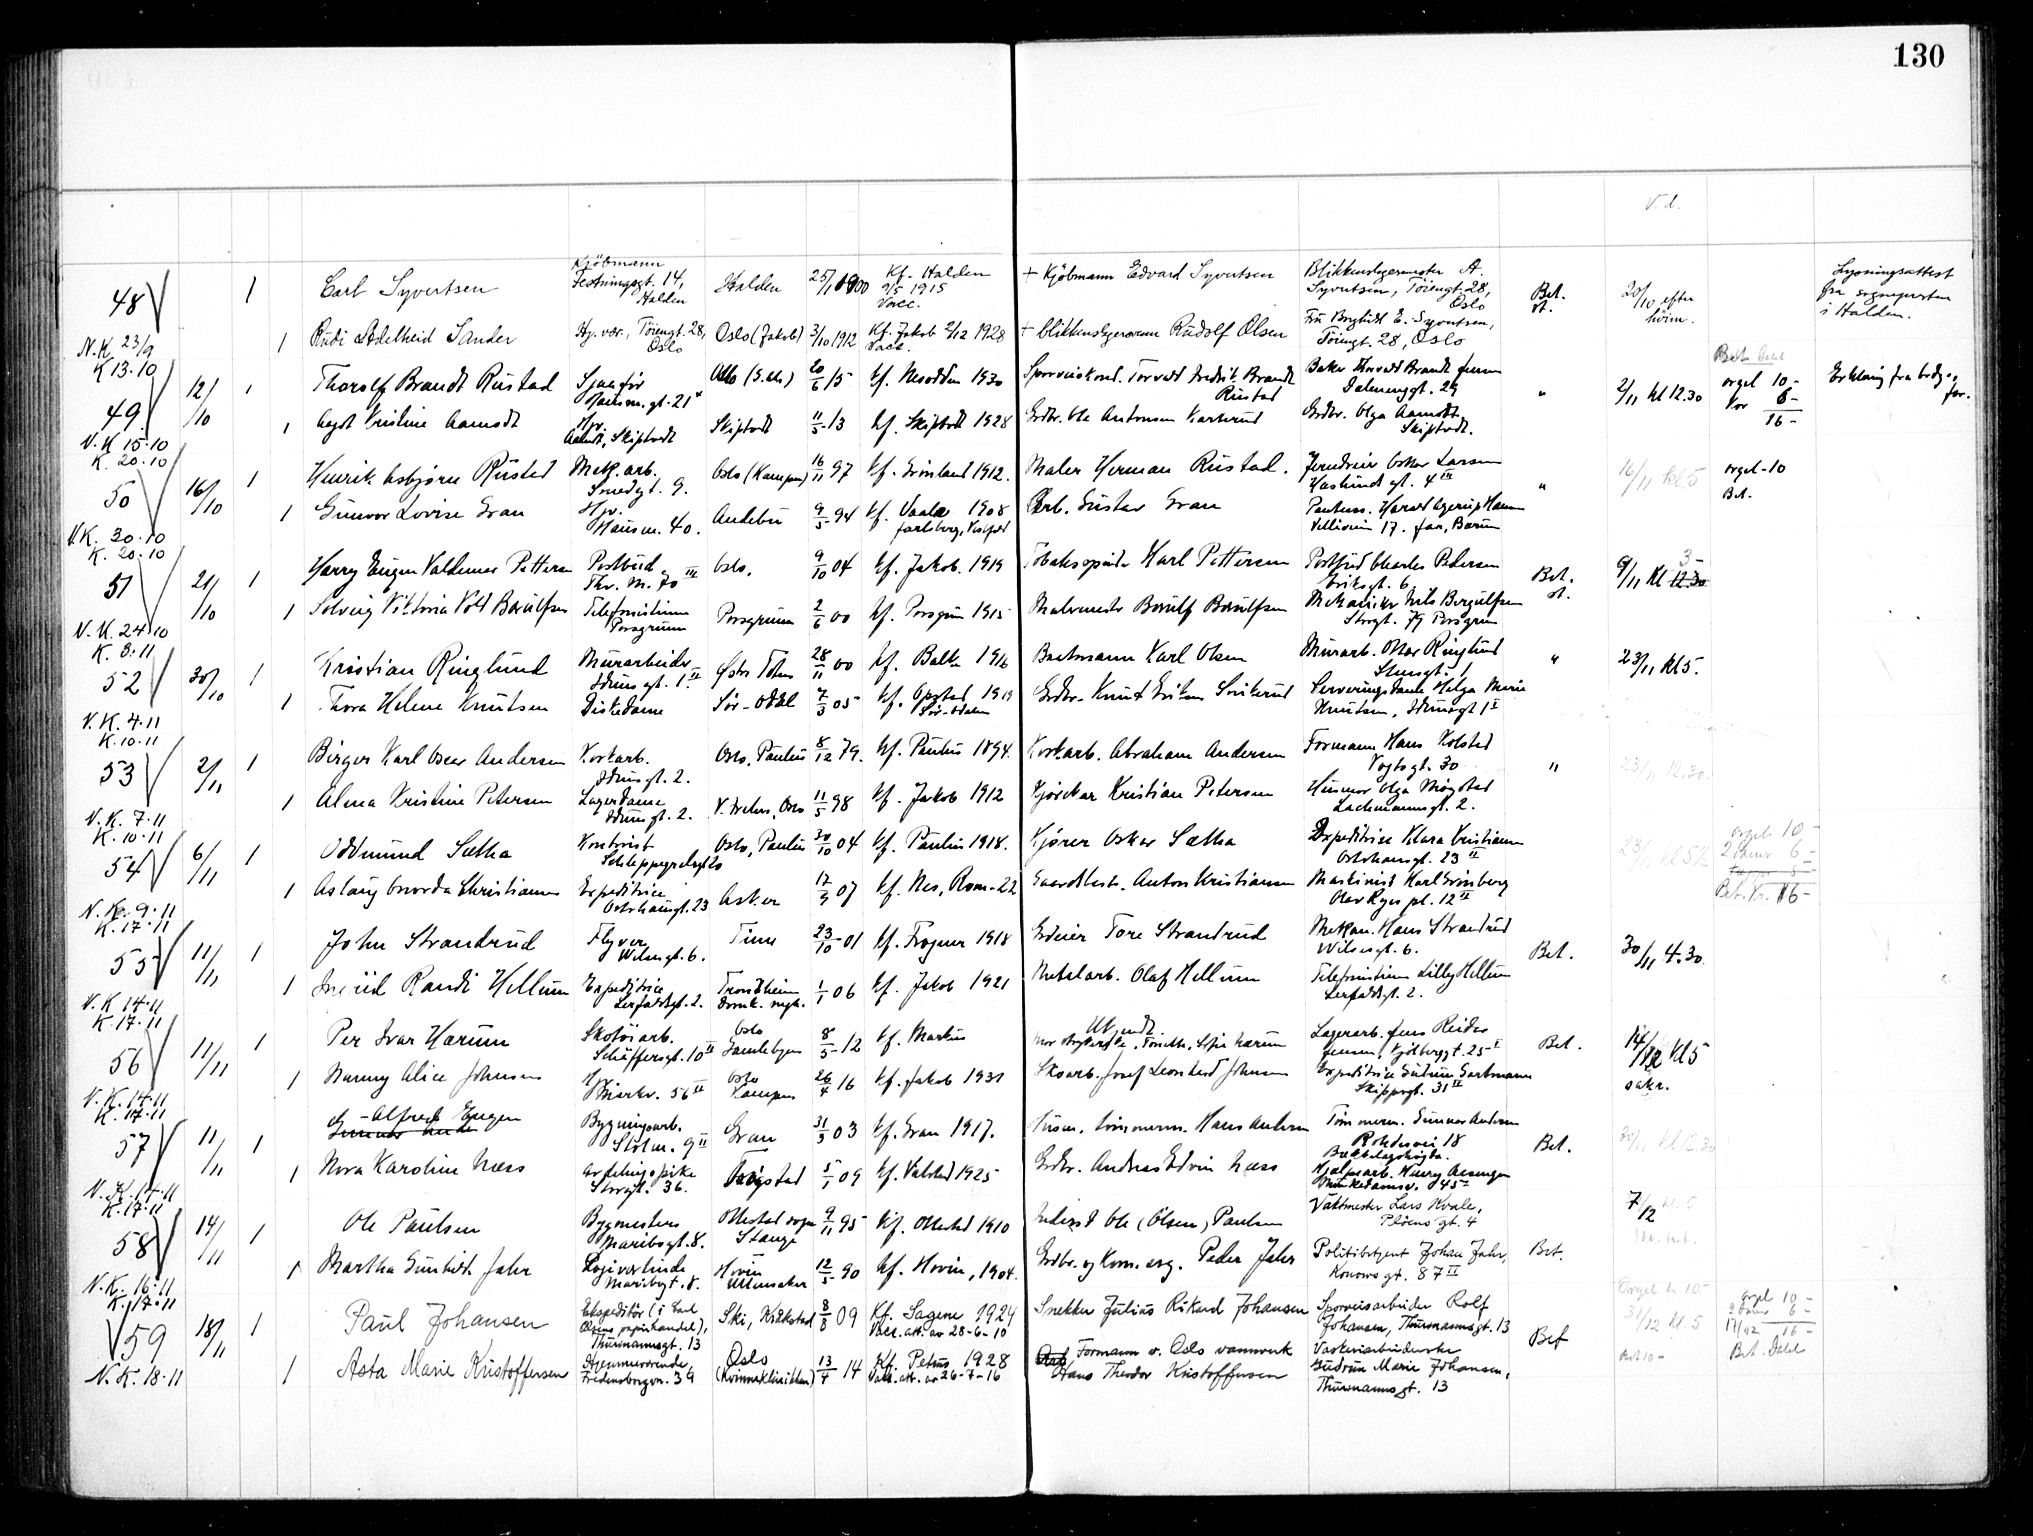 130
V. d.
48 1 Carl Syvertsen Kjöbmann Festningsgt. 14, Halden Halden 25/1 1900 Kf. Halden 9/5 1915 Vacc. + Kjöbmann Edvard Syvertsen Blikkenslagermester A. Syvertsen, Töiengt. 28, Oslo Bet. 20/10 efter höim. Lysningsattest fra sognepresten i Halden.
N.K. 23/9 1 Rudi Adelheid Sander Hj. vær., Töiengt. 28, Oslo Oslo (Jakob) 3/10 1912 Kf. Jakob 2/12 1928 Vacc. + blikkenslagersvenn Rudolf Olsen Fru Borghild E. Syvertsen, Töiengt. 28, Oslo
K 13.10
49 12/10 1 Thorolf Brandt Rustad Sjaafør Hausm. gt. 21 Oslo 20/6 15 kf. Nesodden 1930 Sporveiskond. Torvald Fredrik Brandt Rustad Baker Thorvald Brandt Jensen Dalenenggt. 29 " 2/11 kl 12.30 orgel 10.- Kor 6- 16- Erklæring fra brudgs. far.
N.K 15.10 1 Aagot Kristine Aamodt Hjv. Aamodt, Skiptvedt Skiptvedt 11/5 13 kf. Skiptvedt 1928 Grdbr. Ole Antonsen Karterud Grdbr. Olga Aamodt, Skiptvedt.
K. 20.10
50 16/10 1 Henrik Asbjørn Rustad Mek. arb. Smedgt. 9. Oslo (Kampen) 16/11 97 kf. Grønland 1912. Maler Herman Rustad. Jerndreier Oskar Larsen Haslunds gt. 4 III " 16/11 kl. 5 orgel - 10 Bet.
V.K. 20.10 1 Gunvor Lovise Gran Hjv. Hausm. 40. Andebu 9/5 94 kf. Vaale 1908 Jarlsberg, Vestfold Arb. Gustav Gran Harald Agerup Hansen 17. Jar, Bærum
K. 20.10
51 21/10 1 Harry Eugen Valdemar Pettersen Postbud Thv. M. 70 III Oslo. 9/10 04 kf. Jakob. 1919 Tobakspinder Karl Pettersen Postbud Charles Pedersen Eriksgt. 6. Bet. 9/11 kl 12.30 3-
N.K. 24.10 1 Solveig Viktoria Volt Borulfsen Telefonistinne Porsgrunn Porsgrunn 2/6 00 kf. Porsgrun 1915 Malermester Borulf Borulfsen Mekaniker Nils Borgulfsen Storgt. 79 Porsgrun
K. 3.11
52 30/10 1 Kristian Ringlund Murarbeider Idunsgt. 1. II Østre Toten 28/11 00 kf. Balke 1916 Baatsmann Karl Olsen Murarb. Ottar Ringlund Stensgt. 1 " 23/11 kl 5.
V.K. 4.11 1 Thora Helene Knutsen Diskedame Sør-Odal 7/3 05 kf. Opstad 1919 Sør-Odalen Grdbr. Knut Eriksen Serveringsdame Helga Marie Knutsen, Idunsgt 1 I
K. 10.11
53 2/11 1 Birger Karl Oscar Andersen Korkarb. Idunsgt. 2. Oslo, Paulus 8/12 79. kf. Paulus 1894. Korkarb. Abraham Andersen Formann Hans Kolstad Vogtsgt. 30 " 23/11 12.30.
V.K. 7.11 1 Alma Kristine Petersen Lagerdame Idunsgt. 2. V. Aker, Oslo 11/5 98 kf. Jakob 1912 Kjørekar Kristian Petersen Husmor Olga Mogstad Lachmannsgt. 2.
K. 10.11
54 6/11 1 Oddmund Sætha Kontorist Schleppegrelsgt. Oslo, Paulus 30/10 04 kf. Paulus 1918. Kjører Oskar Sætha Expeditrice Klara Kristiansen Osterhausgt. 23 II 23/11 kl 5½ orgel 10.- 2 6 - Bet. Kr. 16-
N.K. 9.11 1 Aslaug Christiansen Expeditrice Osterhausgt. 23 Asker 17/9 07 kf. Nes, Rom-22 Anton Kristiansen Maskinist Karl Grønberg Olav Ryes pl. 12 II
K. 17.11
55 11/11 1 John Strandrud Flyver Wilsesgt. 6. Time 23/10 01 kf. Frogner 1918 Tore Strandrud Mekan. Hans Strandrud Wilsesgt. 6. Bet. 30/11 4.30.
V.K 14.11 1 Ingrid Randi Hellum Expeditrice Lerfaldsgt. 2. Trondheim Domk. mgh. 1/1 06 kf. Jakob 1921 Metalarb. Olaf Hellum Telefonistinne Lilly Hellum Lerfaldsgt. 2.
K. 17.11
56 11/11 1 Per Ivar Harum Skotøiarb. Schäffersgt. 10 II Oslo Gamlebyen 8/5 12 kf. Markus Lagerarb. Jens Reidar Jensen, Kjølberggt. 25 I Bet. 14/12 kl 5 sakr.
V.K. 14.11 1 Nanny Alice Johnsen Hjv. Markv. 56 II Oslo Kampen 26/4 16 kf. Jakob 1931 Skoarb. Josef Leonhard Johnsen Expeditrice Gudrun Gartmann Skippergt. 31 II
K. 17.11
57 11/11 1 Alfred Eugen Bygningsarb. Stolm. 9 II Gran 31/3 03 kf. Gran 1917. Husm. tømmerm. Hans Andersen Tømmerm. Gunnar Andersen Rohdesvei 18 Bækkelagshøgda. Bet. 30/11 kl 12.30
N.K. 14.11 1 Nora Karoline Næss Avdelingspike Storgt. 36. Trøgstad 5/1 09 kf. Valdres 1925 Grdbr. Andreas Edvin Næss Hjælpearb. Harry Munkedamsv. 45
K. 17.11
58 14/11 1 Ole Paulsen Bygmester Maribogt. 8. Ottestad sogn Stange 9/11 95 kf. Ottestad 1910 Inderst Ole (Olsen) Paulsen Vaktmester Lars Kvale, Pløens gt. 4 Bet. 7/12 kl. 5
N.K. 16.11 1 Martha Gunhild Jahr Logivertinde Maribogt. 8. Hovin Ullensaker 12/5 90 kf. Hovin, 1904. Grdbr. og Kom. arg. Peder Jahr Politibetjent Johan Jahr, Konows gt. 87 II
K. 17.11
59 18/11 1 Paul Johansen Ekspeditör (i Carl Olsens papirhandel), Thurmannsgt. 13 Ski, Kråkstad 8/8 09 Kf. Sagene 1924 Vacc. att. av 28-6-10 Snekker Julius Rikard Johansen Sporveisarbeider Rolf Johansen, Thurmannsgt. 13 Bet 31/12 kl. 5 orgel 10 - 6 - 16 - Bet.
N.K. 18.11 1 Asta Marie Kristoffersen Hjemmeværende, Fredensborgv. 39 Oslo (Kvinneklinikken) 13/4 14 Kf. Petrus 1928 Vacc. att. av 26-7-16 Formann v. Oslo vannverk Hans Theodor Kristoffersen Vaskeriarbeiderske Gudrun Marie Johansen, Thurmannsgt. 13